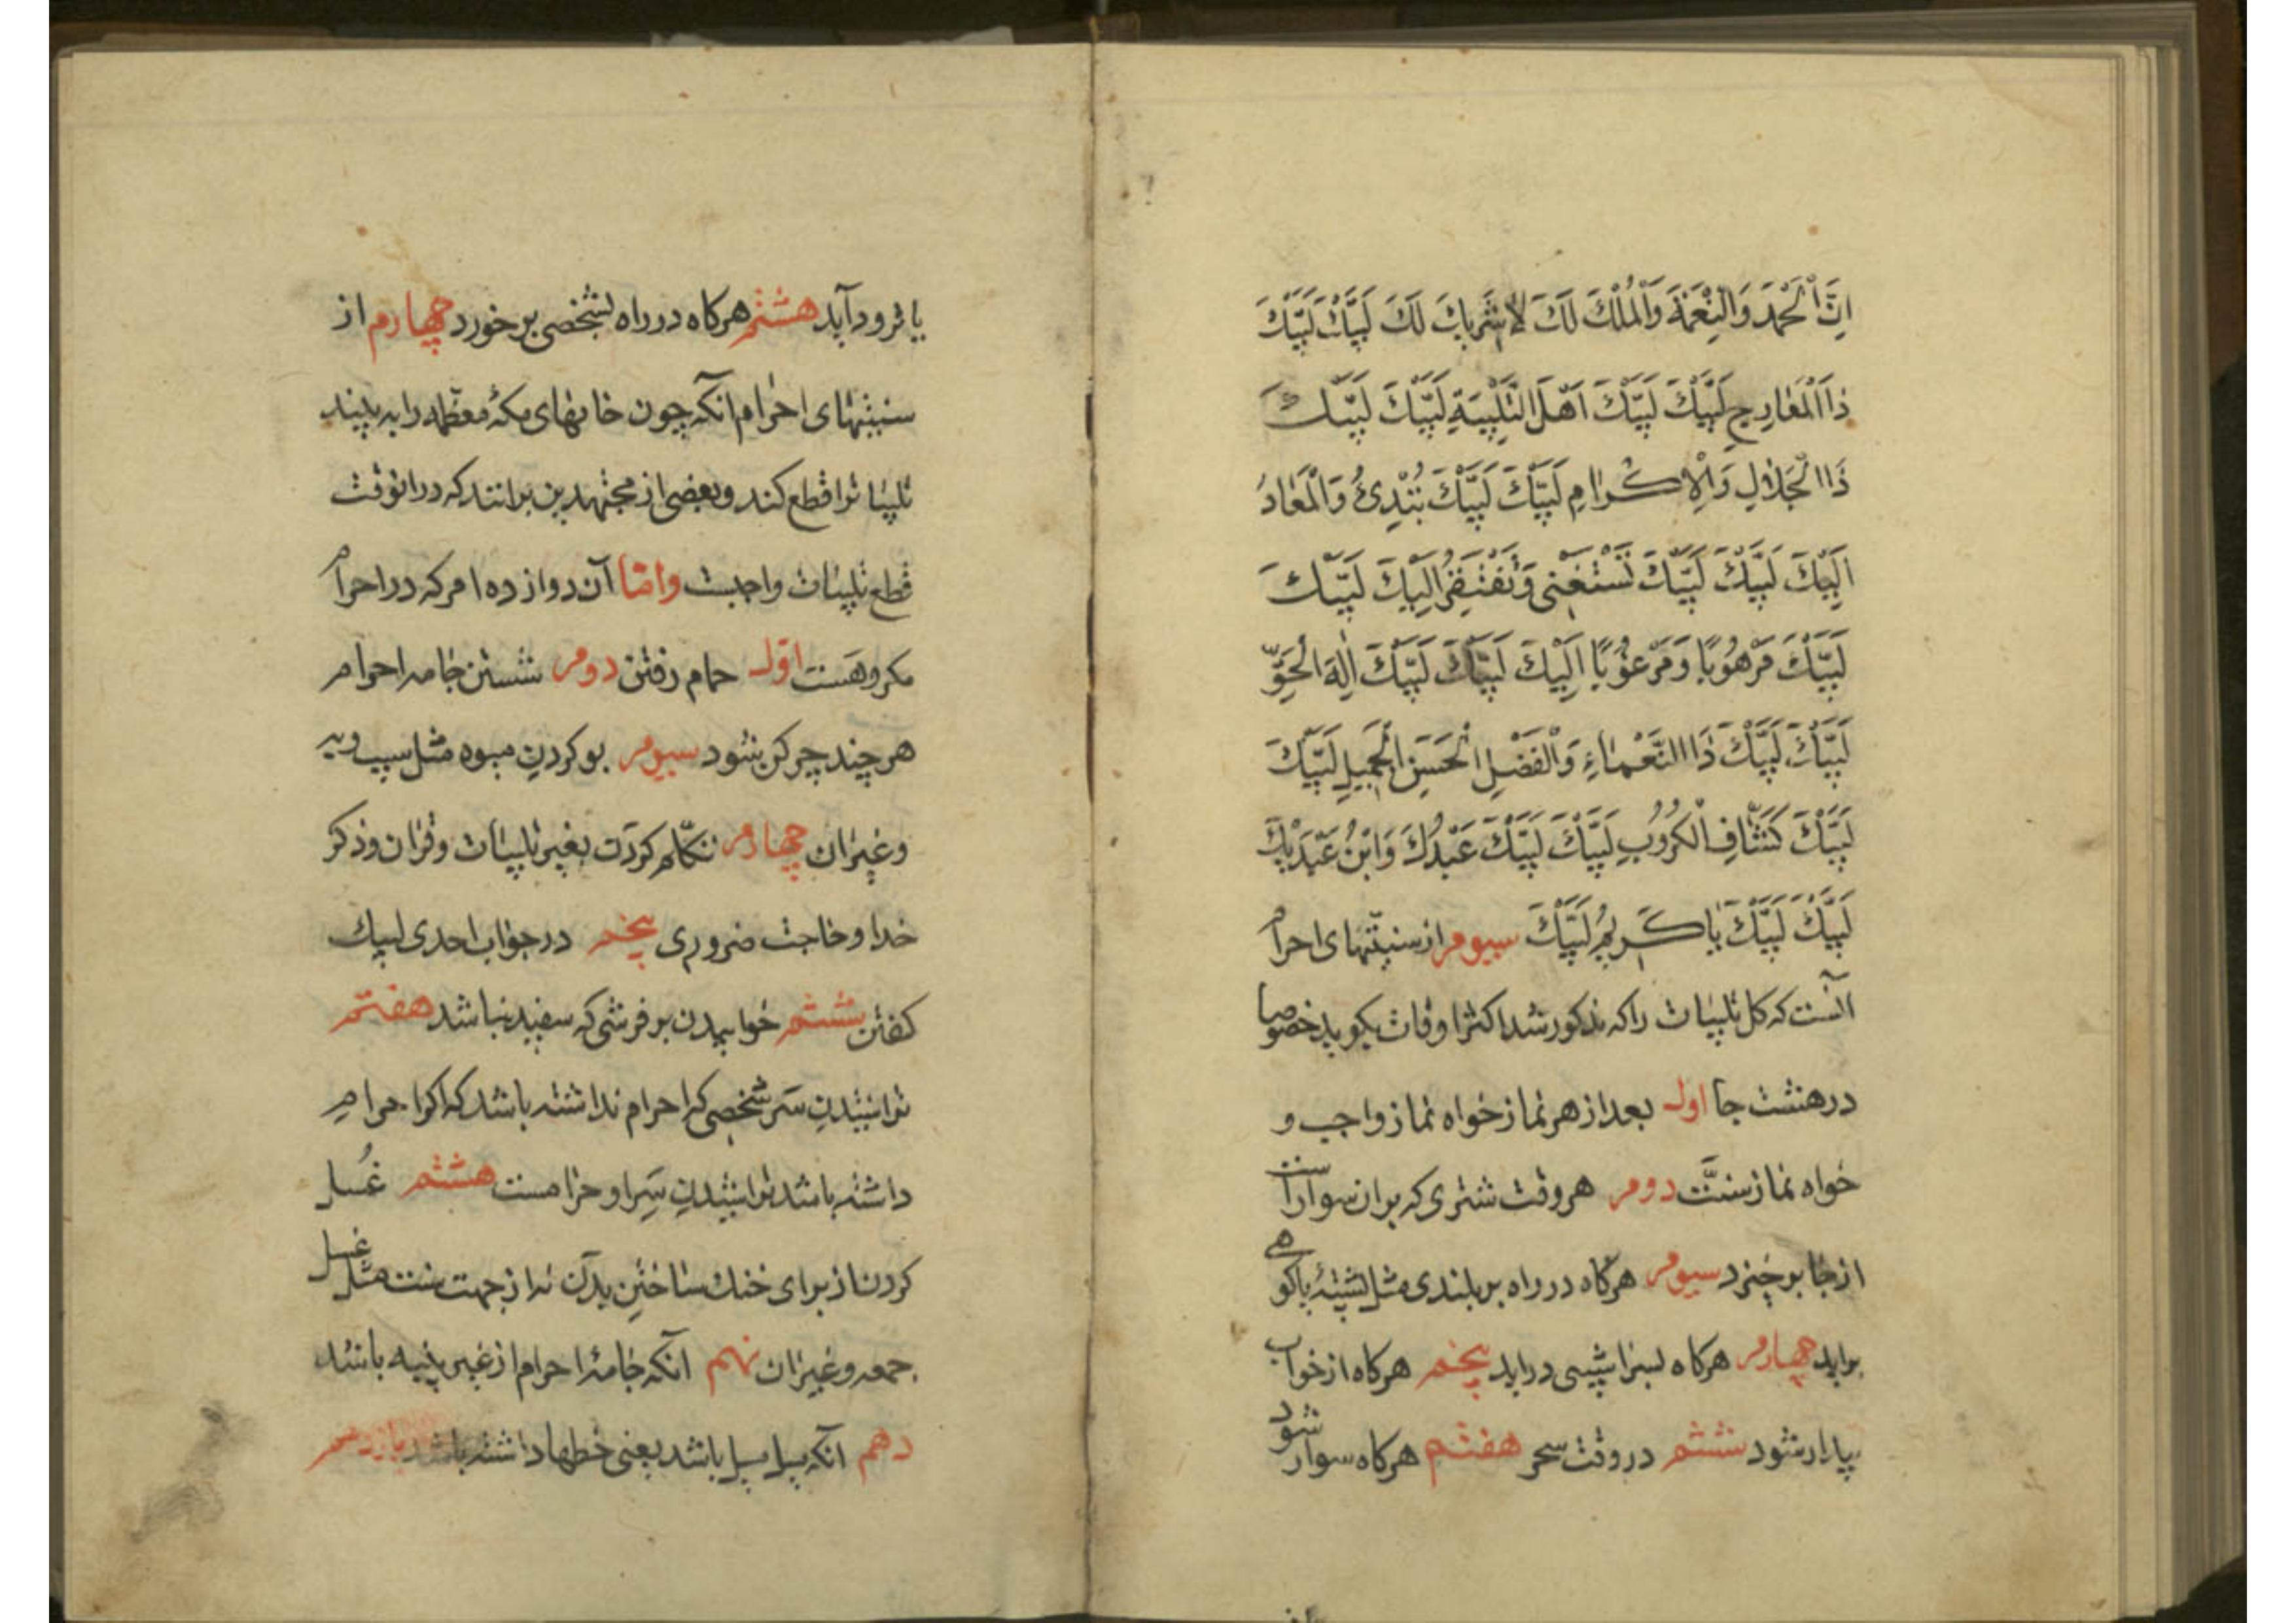 اِنَّ الْحَمْدَ وَالنِّعْمَةَ وَالْمُلْكَ لَكَ لَا شَرِيكَ لَكَ لَبَّيْكَ لَبَّيْكَ
ذَا الْمَعَارِجِ لَبَّيْكَ لَبَّيْكَ اَهْلَ التَّلْبِيَةِ لَبَّيْكَ لَبَّيْكَ
ذَا الْجَلَالِ وَالْاِكْرَامِ لَبَّيْكَ لَبَّيْكَ تُبْدِئُ وَالْمَعَادُ
اِلَيْكَ لَبَّيْكَ لَبَّيْكَ تَسْتَغْنِي وَنَفْتَقِرُ اِلَيْكَ لَبَّيْكَ
لَبَّيْكَ مَرْهُوبًا وَمَرْعُوبًا اِلَيْكَ لَبَّيْكَ لَبَّيْكَ اِلٰهَ الْحَقِّ
لَبَّيْكَ لَبَّيْكَ ذَا النَّعْمَاءِ وَالْفَضْلِ الْحَسَنِ الْجَمِيلِ لَبَّيْكَ
لَبَّيْكَ كَشَّافِ الْكُرُوبِ لَبَّيْكَ لَبَّيْكَ عَبْدُكَ وَابْنُ عَبْدَيْكَ
لَبَّيْكَ لَبَّيْكَ يَا كَرِيمُ لَبَّيْكَ سیوم از سنتهای احرام
آنست که کل تلبیات را که مذکور شد اکثر اوقات بکوید خصوصا
در هشت جا اول بعد از هر نماز خواه نماز واجب و
خواه نماز سنّت دوم هر وقت شتری که بران سوار است
از جا برخیزد سیوم هرکاه در راه بر بلندی مثل پشتهٔ یا کوهی
براید چهارم هرکاه بسراشیبی دراید پنجم هرکاه از خواب
بیدار شود ششم در وقت سحر هفتم هرکاه سوار شود
یا فرود آید هشتم هرکاه در راه بشخصی بر خورد چهارم از
سنتهای احرام آنکه چون خانهای مکهٔ معظمه را به بیند
تلبیات را قطع کند و بعضی از مجتهدین برانند که در انوقت
قطع تلبیات واجبست وامّا آن دوازده امر که در احرام
مکروهست اوّل حمام رفتن دوم شستن جامه احرام
هر چند چرکن بشود سیوم بو کردن میوه مثل سیب و به
و غیران چهارم تکلّم کردن بغیر تلبیات و قران و ذکر
خدا و حاجت ضروری پنجم در جواب احدی لبیک
کفتن ششم خوابیدن بر فرشی که سفید نباشد هفتم
تراشیدن سر شخصی که احرام نداشته باشد که اکر احرام
داشته باشد تراشیدن سر او حرامست هشتم غُسل
کردن از برای خنک ساختن بدن نه از جهت سنت مثل غسل
جمعه و غیران نهم آنکه جامهٔ احرام از غیر پنبه باشد
دهم آنکه میل میل باشد یعنی خطها داشته باشد یازدهم